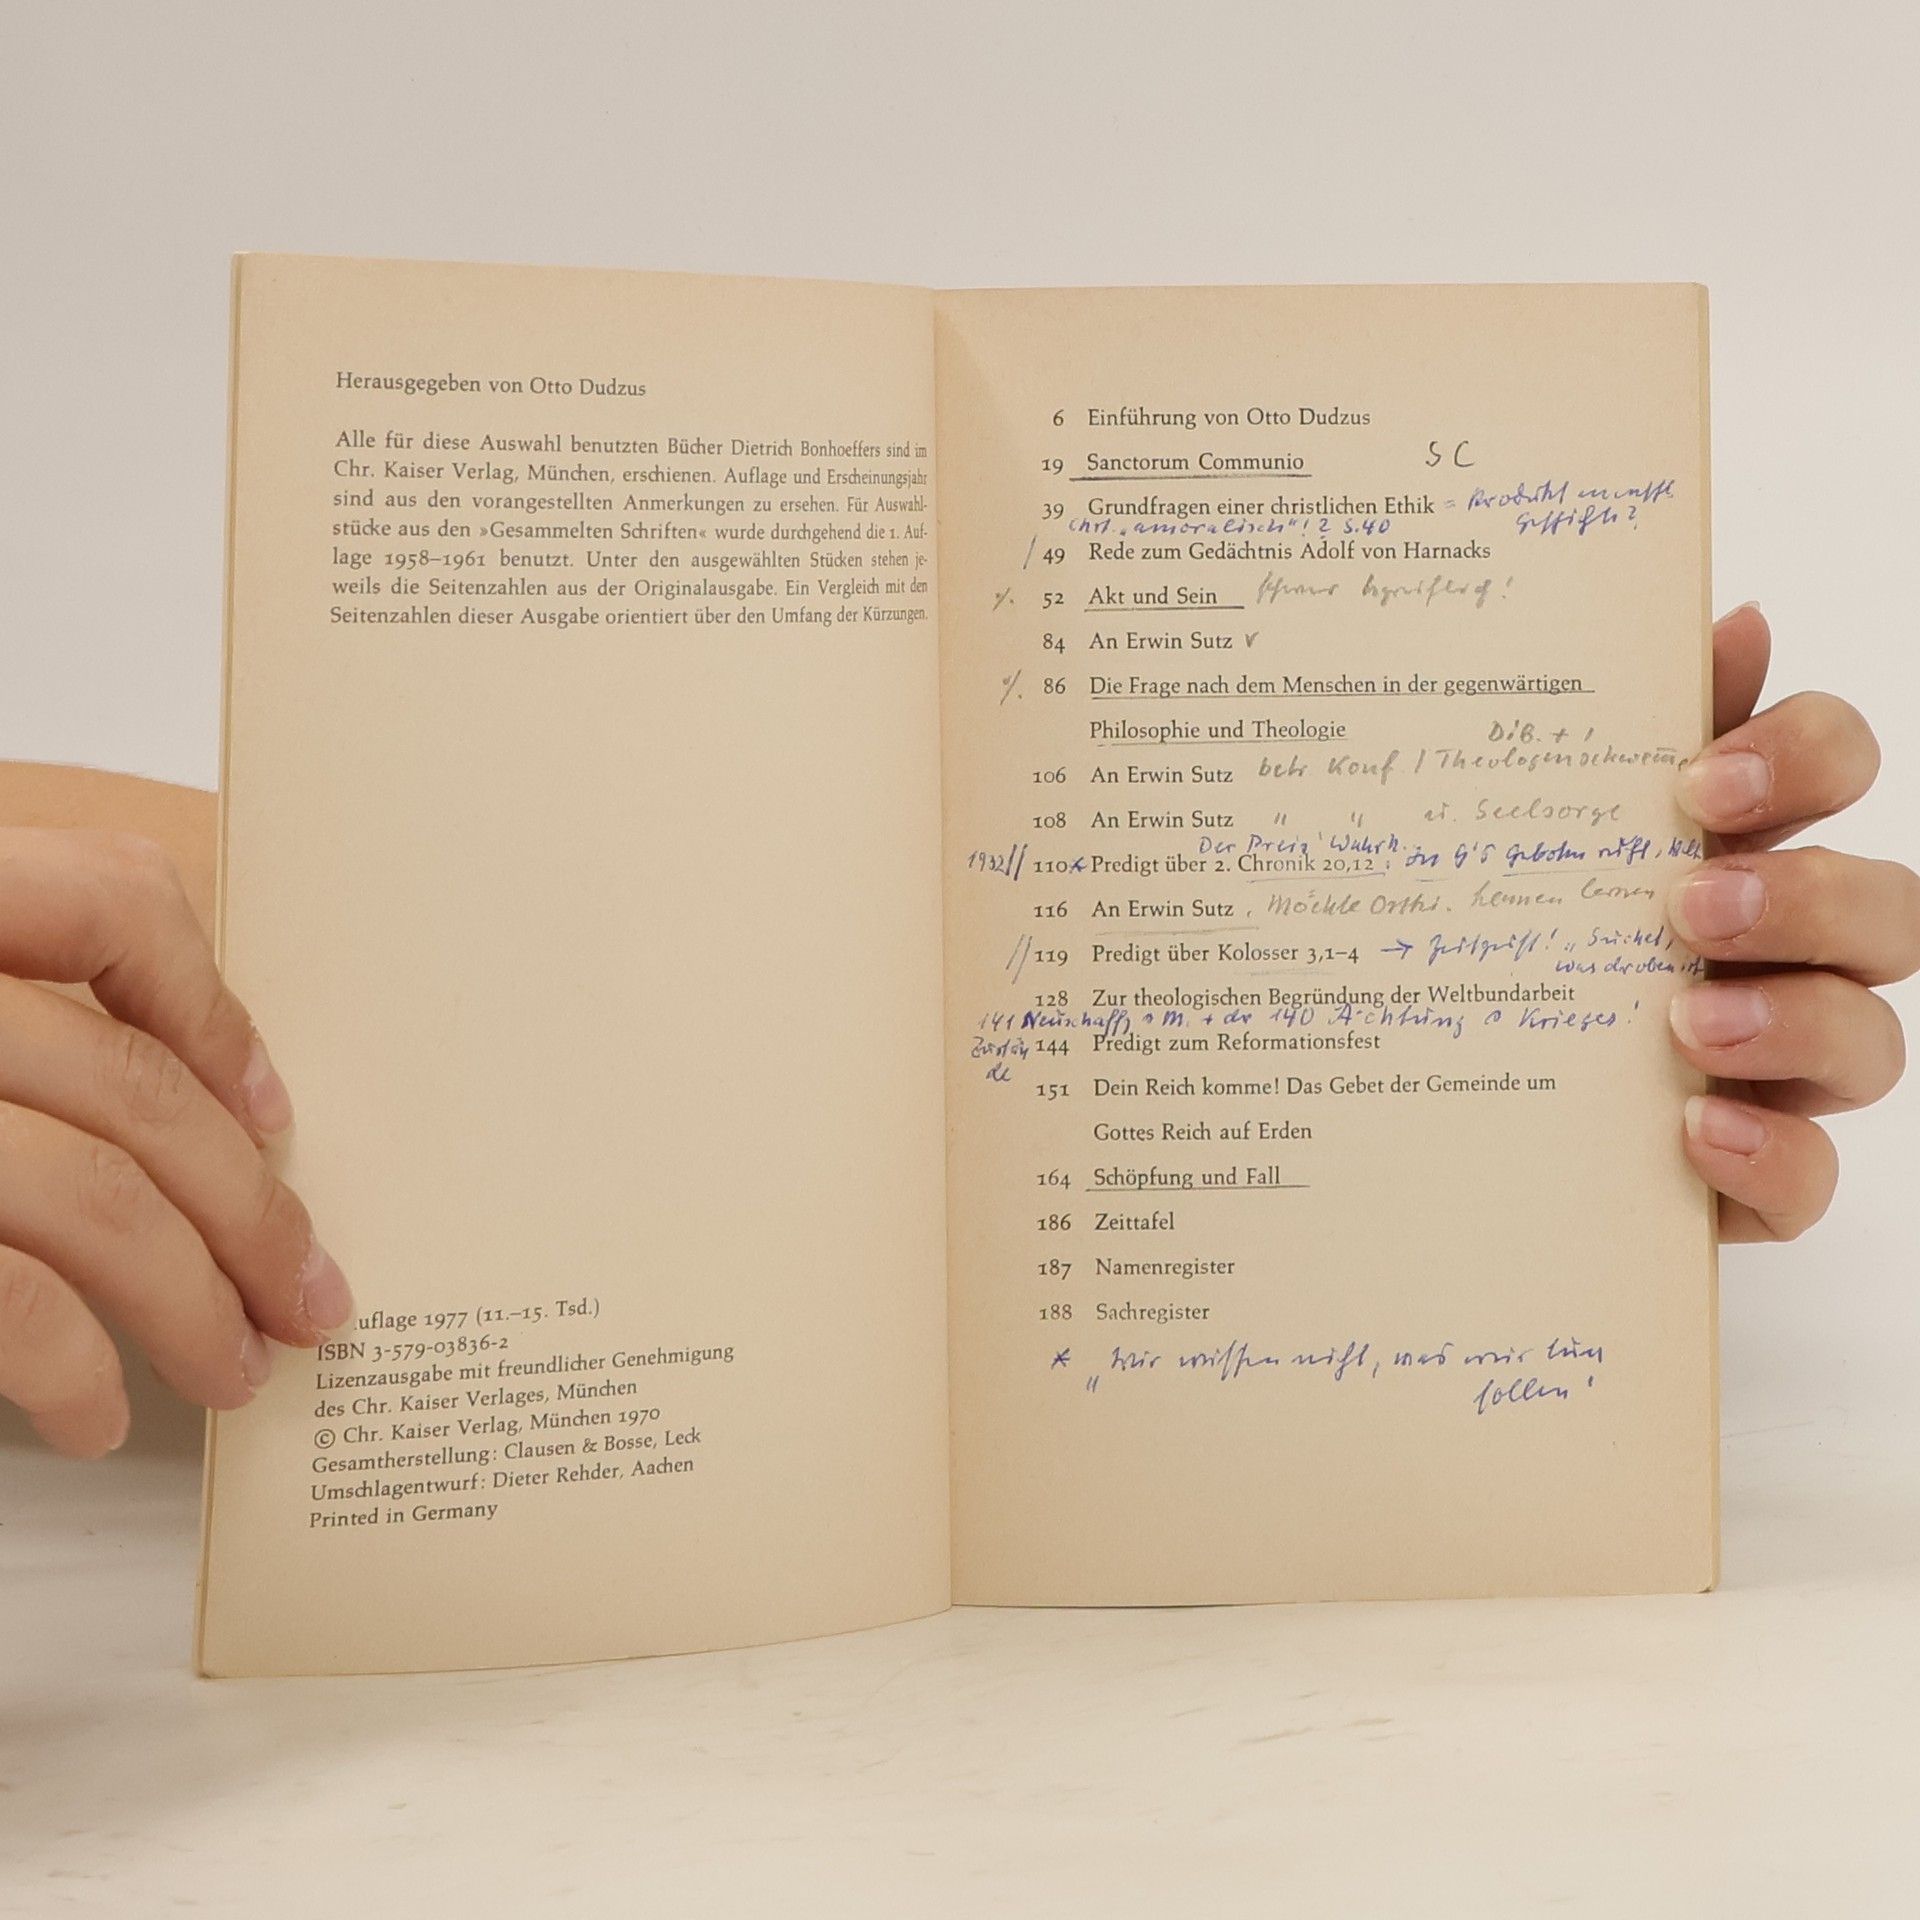 Herausgegeben von Otto Dudzus
Alle für diese Auswahl benutzten Bücher Dietrich Bonhoeffers sind im
Chr. Kaiser Verlag, München, erschienen. Auflage und Erscheinungsjahr
sind aus den vorangestellten Anmerkungen zu ersehen. Für Auswahl-
stücke aus den »Gesammelten Schriften« wurde durchgehend die 1. Auf-
lage 1958–1961 benutzt. Unter den ausgewählten Stücken stehen je-
weils die Seitenzahlen aus der Originalausgabe. Ein Vergleich mit den
Seitenzahlen dieser Ausgabe orientiert über den Umfang der Kürzungen.
uflage 1977 (11.–15. Tsd.)
ISBN 3-579-03836-2
Lizenzausgabe mit freundlicher Genehmigung
des Chr. Kaiser Verlages, München
© Chr. Kaiser Verlag, München 1970
Gesamtherstellung: Clausen & Bosse, Leck
Umschlagentwurf: Dieter Rehder, Aachen
Printed in Germany
6 Einführung von Otto Dudzus
19 Sanctorum Communio SC
39 Grundfragen einer christlichen Ethik = Produkt
Gesicht?
Chrl. „amoralisch"! ? S.40
/ 49 Rede zum Gedächtnis Adolf von Harnacks
52 Akt und Sein schwer begreiflich!
84 An Erwin Sutz
86 Die Frage nach dem Menschen in der gegenwärtigen
Philosophie und Theologie
106 An Erwin Sutz betr Konf. / Theologenschwemme
108 An Erwin Sutz " " Seelsorge
Der Preis Wahrh.
1932 // 110 * Predigt über 2. Chronik 20,12 :
116 An Erwin Sutz , Möchte kennen lernen
// 119 Predigt über Kolosser 3,1–4 → Zeitgeist! „Suchet,
was droben ist
128 Zur theologischen Begründung der Weltbundarbeit
141 140 Ächtung Krieges!
144 Predigt zum Reformationsfest
151 Dein Reich komme! Das Gebet der Gemeinde um
Gottes Reich auf Erden
164 Schöpfung und Fall
186 Zeittafel
187 Namenregister
188 Sachregister
* „Wir wissen nicht, was wir tun
sollen'